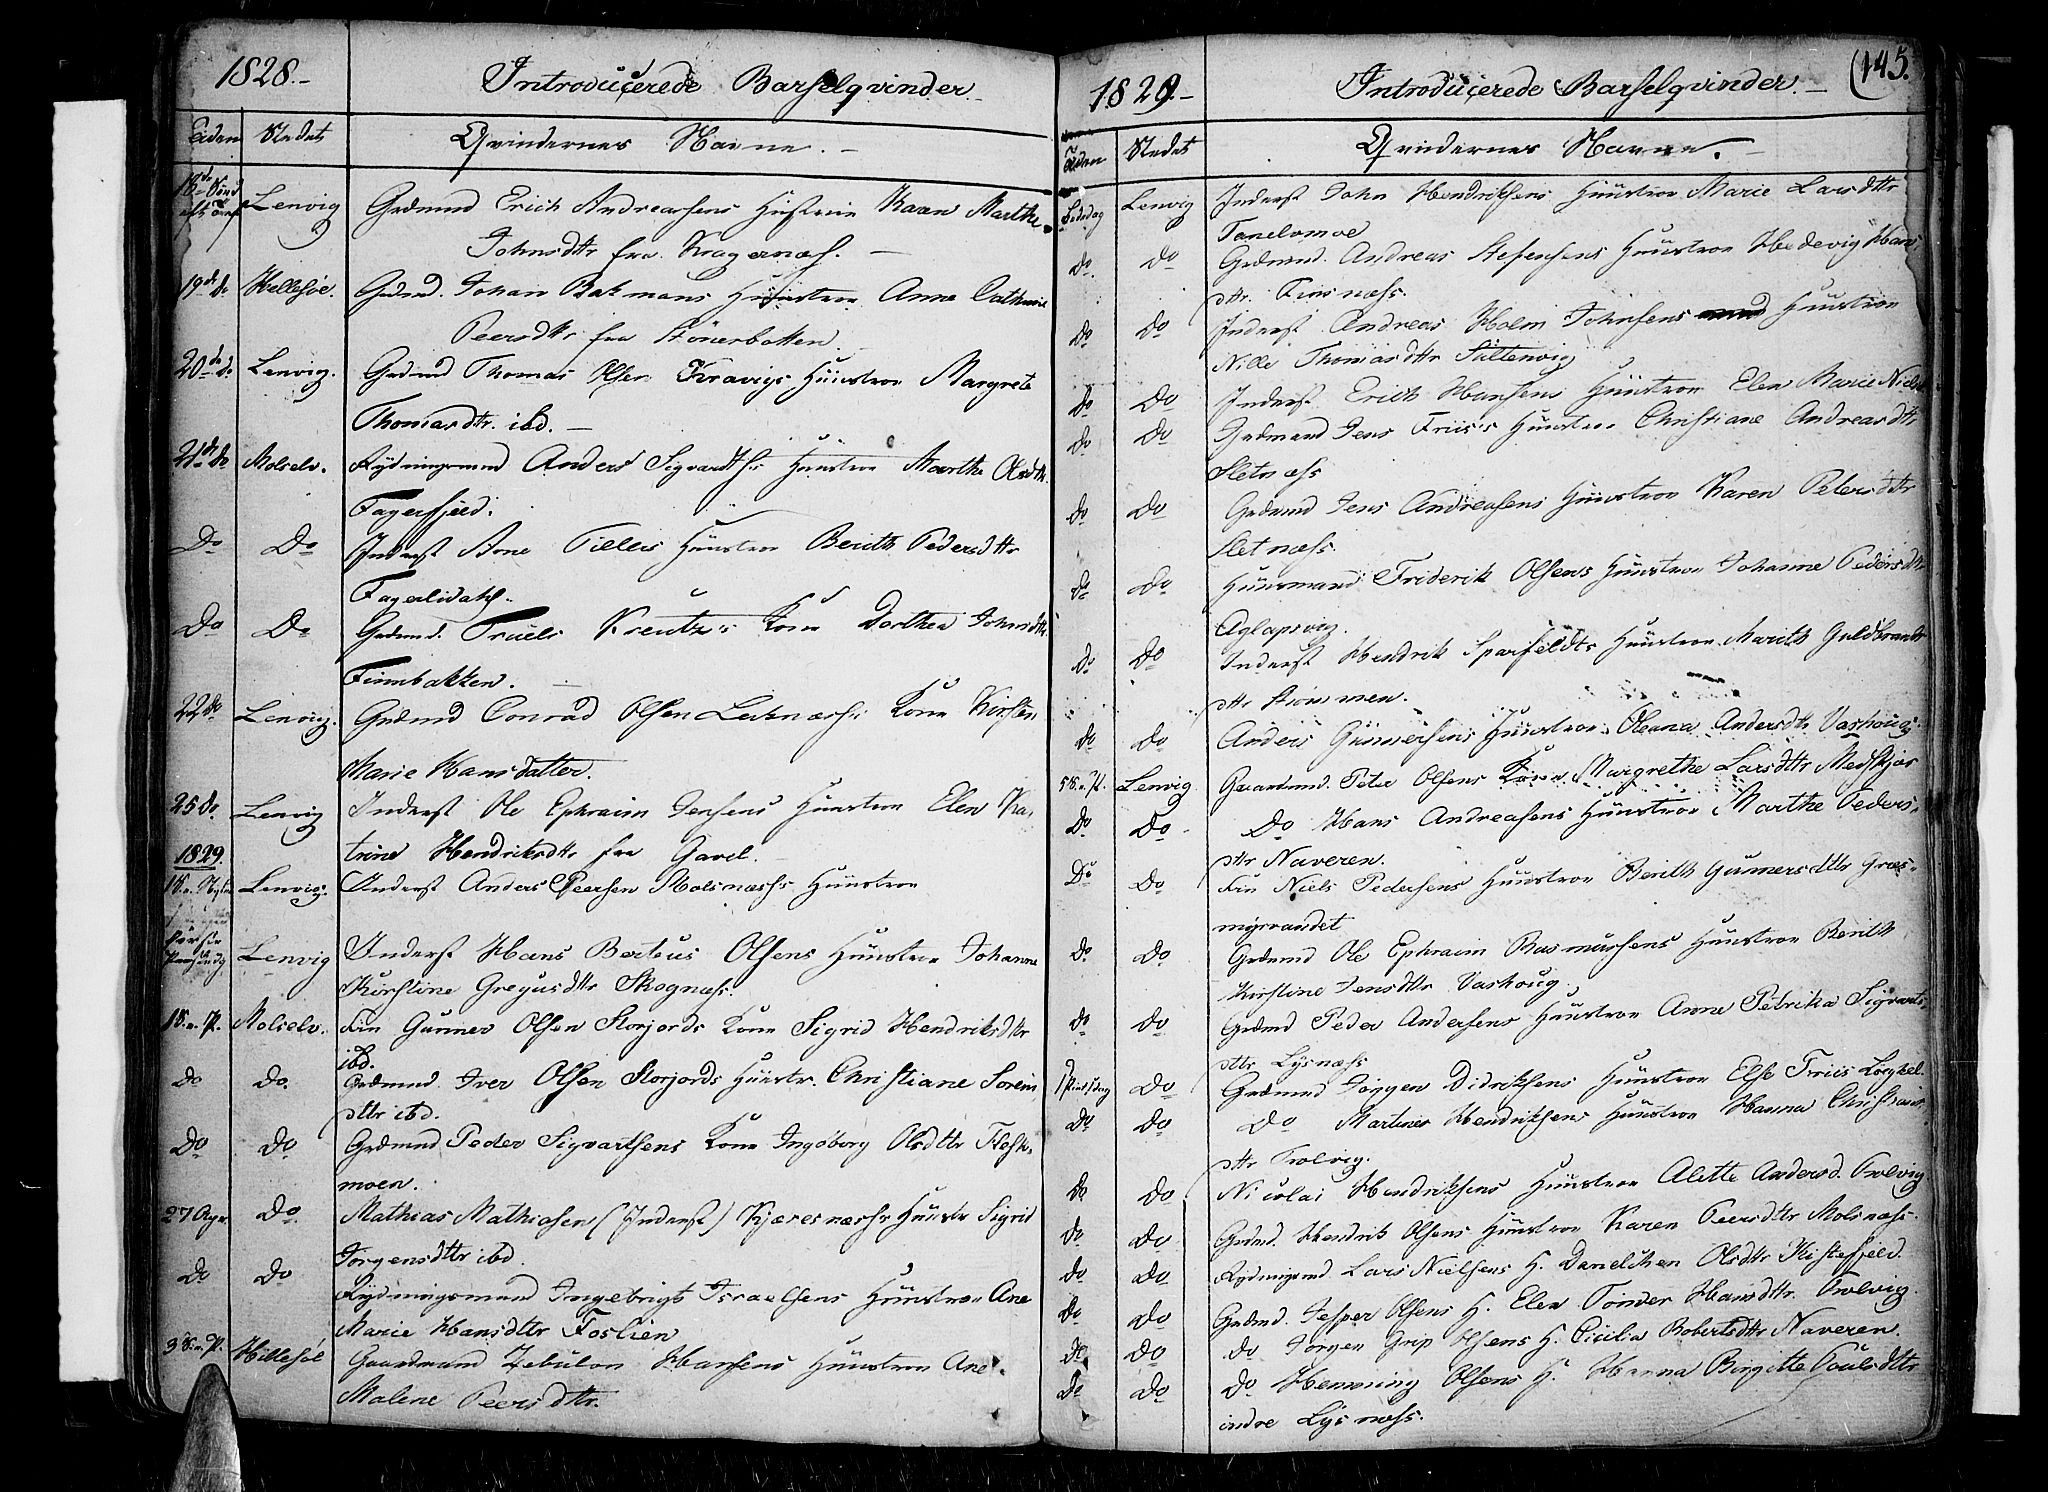 1828.-
Introducerede Barselqvinder.-
Tiden Stedet Qvindernes Navne.-
18de Sönd Lenvig Grdmnd Erich Andreasens Hustrue Karen Marthe
Johnsdttr fra Kragernæs.-
19de do Hellesöe. Grdmd. Johan Bakmans Huustroe Anne Cathrine
Peersdttr fra Stönerbotten.
20de do Lenvig. Grdmd Thomas Olsen Kravigs Huustroe Margrete
Thomasdttr. ibd.-
21de do Molselv. Rydningsmnd Anders Sigvardtsens Huustroe Marthe Olsdttr
Fagerfjeld.
Do Do Inderst Arne Huustroe Berith Pedersdttr
Fagerlidahl.
Do Do Grdmd. Truels Kreutzers Kone Dorthea Johnsdttr
Finnbakken.-
22 do Lenvig. Grdmnd Conrad Olsen Leiknæss Kone Kirsten
Marie Hansdatter.
25 do. Lenvig Inderst Ole Ephraim Jensens Huustroe Elen Ka-
trine Hendriksdttr fra Gavel.-
1829.
Lenvig. Inderst Anders Peersen Molsnæss Huustroe
Lenvig Inderst Hans Berteus Olsens Huustroe Johanne
Kirstine Gregusdttr Skognæss.
1 S. n. P. Molselv. Fin Gunner Olsen Storjords Kone Sigrid Hendriksdttr
ibd.
Do Do. Grdmnd. Iver Olsen Storjords Huustr. Christiane Sören
dttr ibd.
Do Do Grdmnd Peder Sigvartsens Kone Ingeborg Olsdttr Flesk-
moen.
27 Apr. Do Mathias Mathiasen (Inderst) Kjæresnæss Huustr Sigrid
Jørgensdttr ibd.
Do Do Rydningsmand Ingebrigt Israelsens Huustroe Ane
Marie Hansdttr Foslien
3 S. n. P. Hillesöe Gaardmand Zebulon Hansens Huustroe Ane
Malene Peersdttr.
1829.-
Introducerede Barselqvinder.- (145.
Tiden Stedet Qvindernes Navne.-
Bededag Lenvig Inderst John Hendriksens Huustroe Marie Larsdttr
Do Do Grdmnd. Andreas Stephensens Huustroe Hedevig Hans
dttr. Finsnæss.
Do Do Inderst Andreas Holm Johnsens Huustroe
Nille Thomasdttr Sultenvig
Do Do Inderst Erich Hansens Huustroe Elen Marie Niels
Do Do Grdmand Jens Friis's Huustroe Christiane Andreasdttr
Sletnæss
Do Do Grdmnd Jens Andreasens Huustroe Karen Petersdttr
Sletnæss.
Do Do Huusmand Friderik Olsens Huustroe Johanne Pedersdttr
Aglapsvig.
Do Do Inderst Hendrik Sparfeldts Huustroe Marith Guldbrands
dttr Strømmen.
Do Do Anders Gunnersens Huustroe Oleana Andersdtr Vashoug
5 S. n. P. Lenvig Gaardmd. Peter Olsens Kone Margrethe Larsdttr Medskjær
Do Do Do Hans Andreasens Huustroe Marthe Peders-
dttr Naveren.
Do Do Fin Niels Pedersens Huustroe Berith Gunnersdttr Græs-
myrvandet
Do Do Grdmnd Ole Ephraim Rasmussens Huustroe Berith
Kirstine Jensdttr Vashoug
Do Do Grdmd Peder Andersens Huustroe Anne Petrika Sigvarts-
dttr Lysnæss
1 Pintsdag Do Grdmnd Jørgen Didriksens Huustroe Else Friis
Do Do Do Martines Hendriksens Huustroe Hanna Christians-
dttr Trolvig.
Do Do Nicolai Hendriksens Huustroe Alette Andersd. Trolvig
Do Do Grdmd. Hendrik Olsens Huustroe Karen Peersdttr Molsnæss.
Do Do Rydningsmd. Lars Nielsens H. Danelchen Olsdttr Kistefjeld.
Do Do Grdmd. Jesper Olsens H. Elen Tønder Hansdttr. Trolvig.
Do Do do Jørgen Grip Olsens H. Cicilia Robertsdttr Naveren.
Do Do Do Henning Olsens H. Hanna Birgitte Poulsdttr
indre Lysnæss.